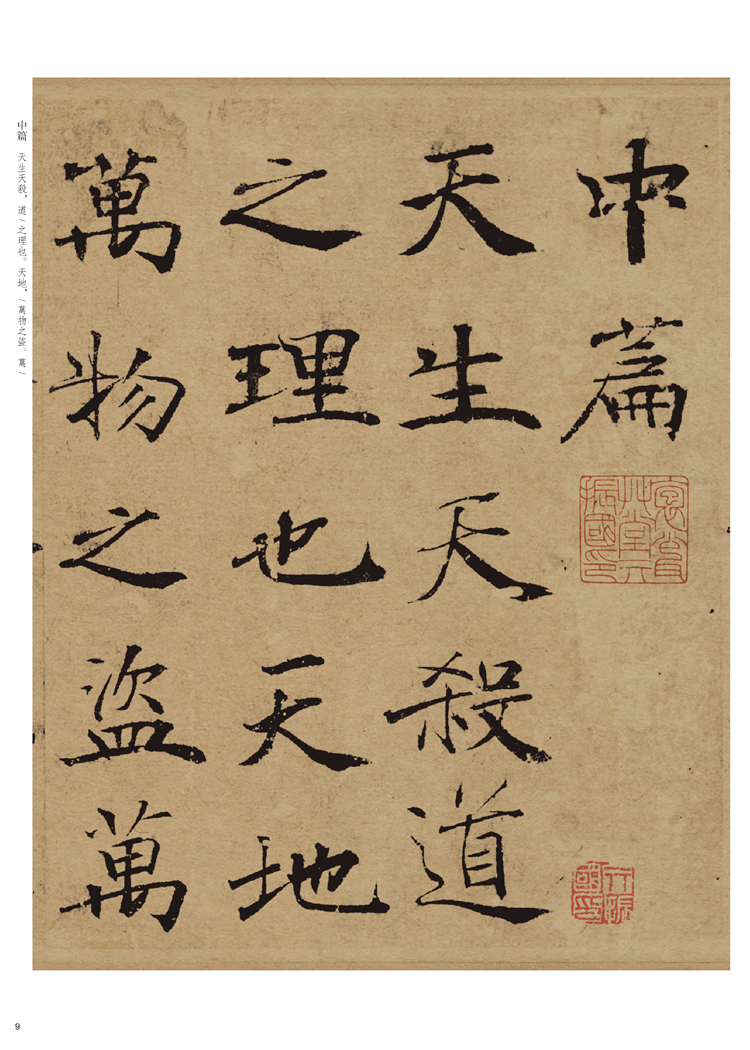 中篇
天生天殺道
之理也天地
萬物之盜萬
中篇 天生天殺，道／之理也。天地，／萬物之盜。萬／
9